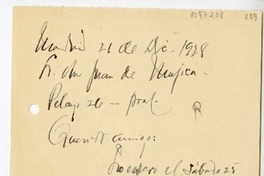 1097208 089
Madrid 21 de Dic. 1928
Sr. Dn Juan de Mujica
Pelayo 26 — pral.
Querido amigo:
Lo espero el sábado 25